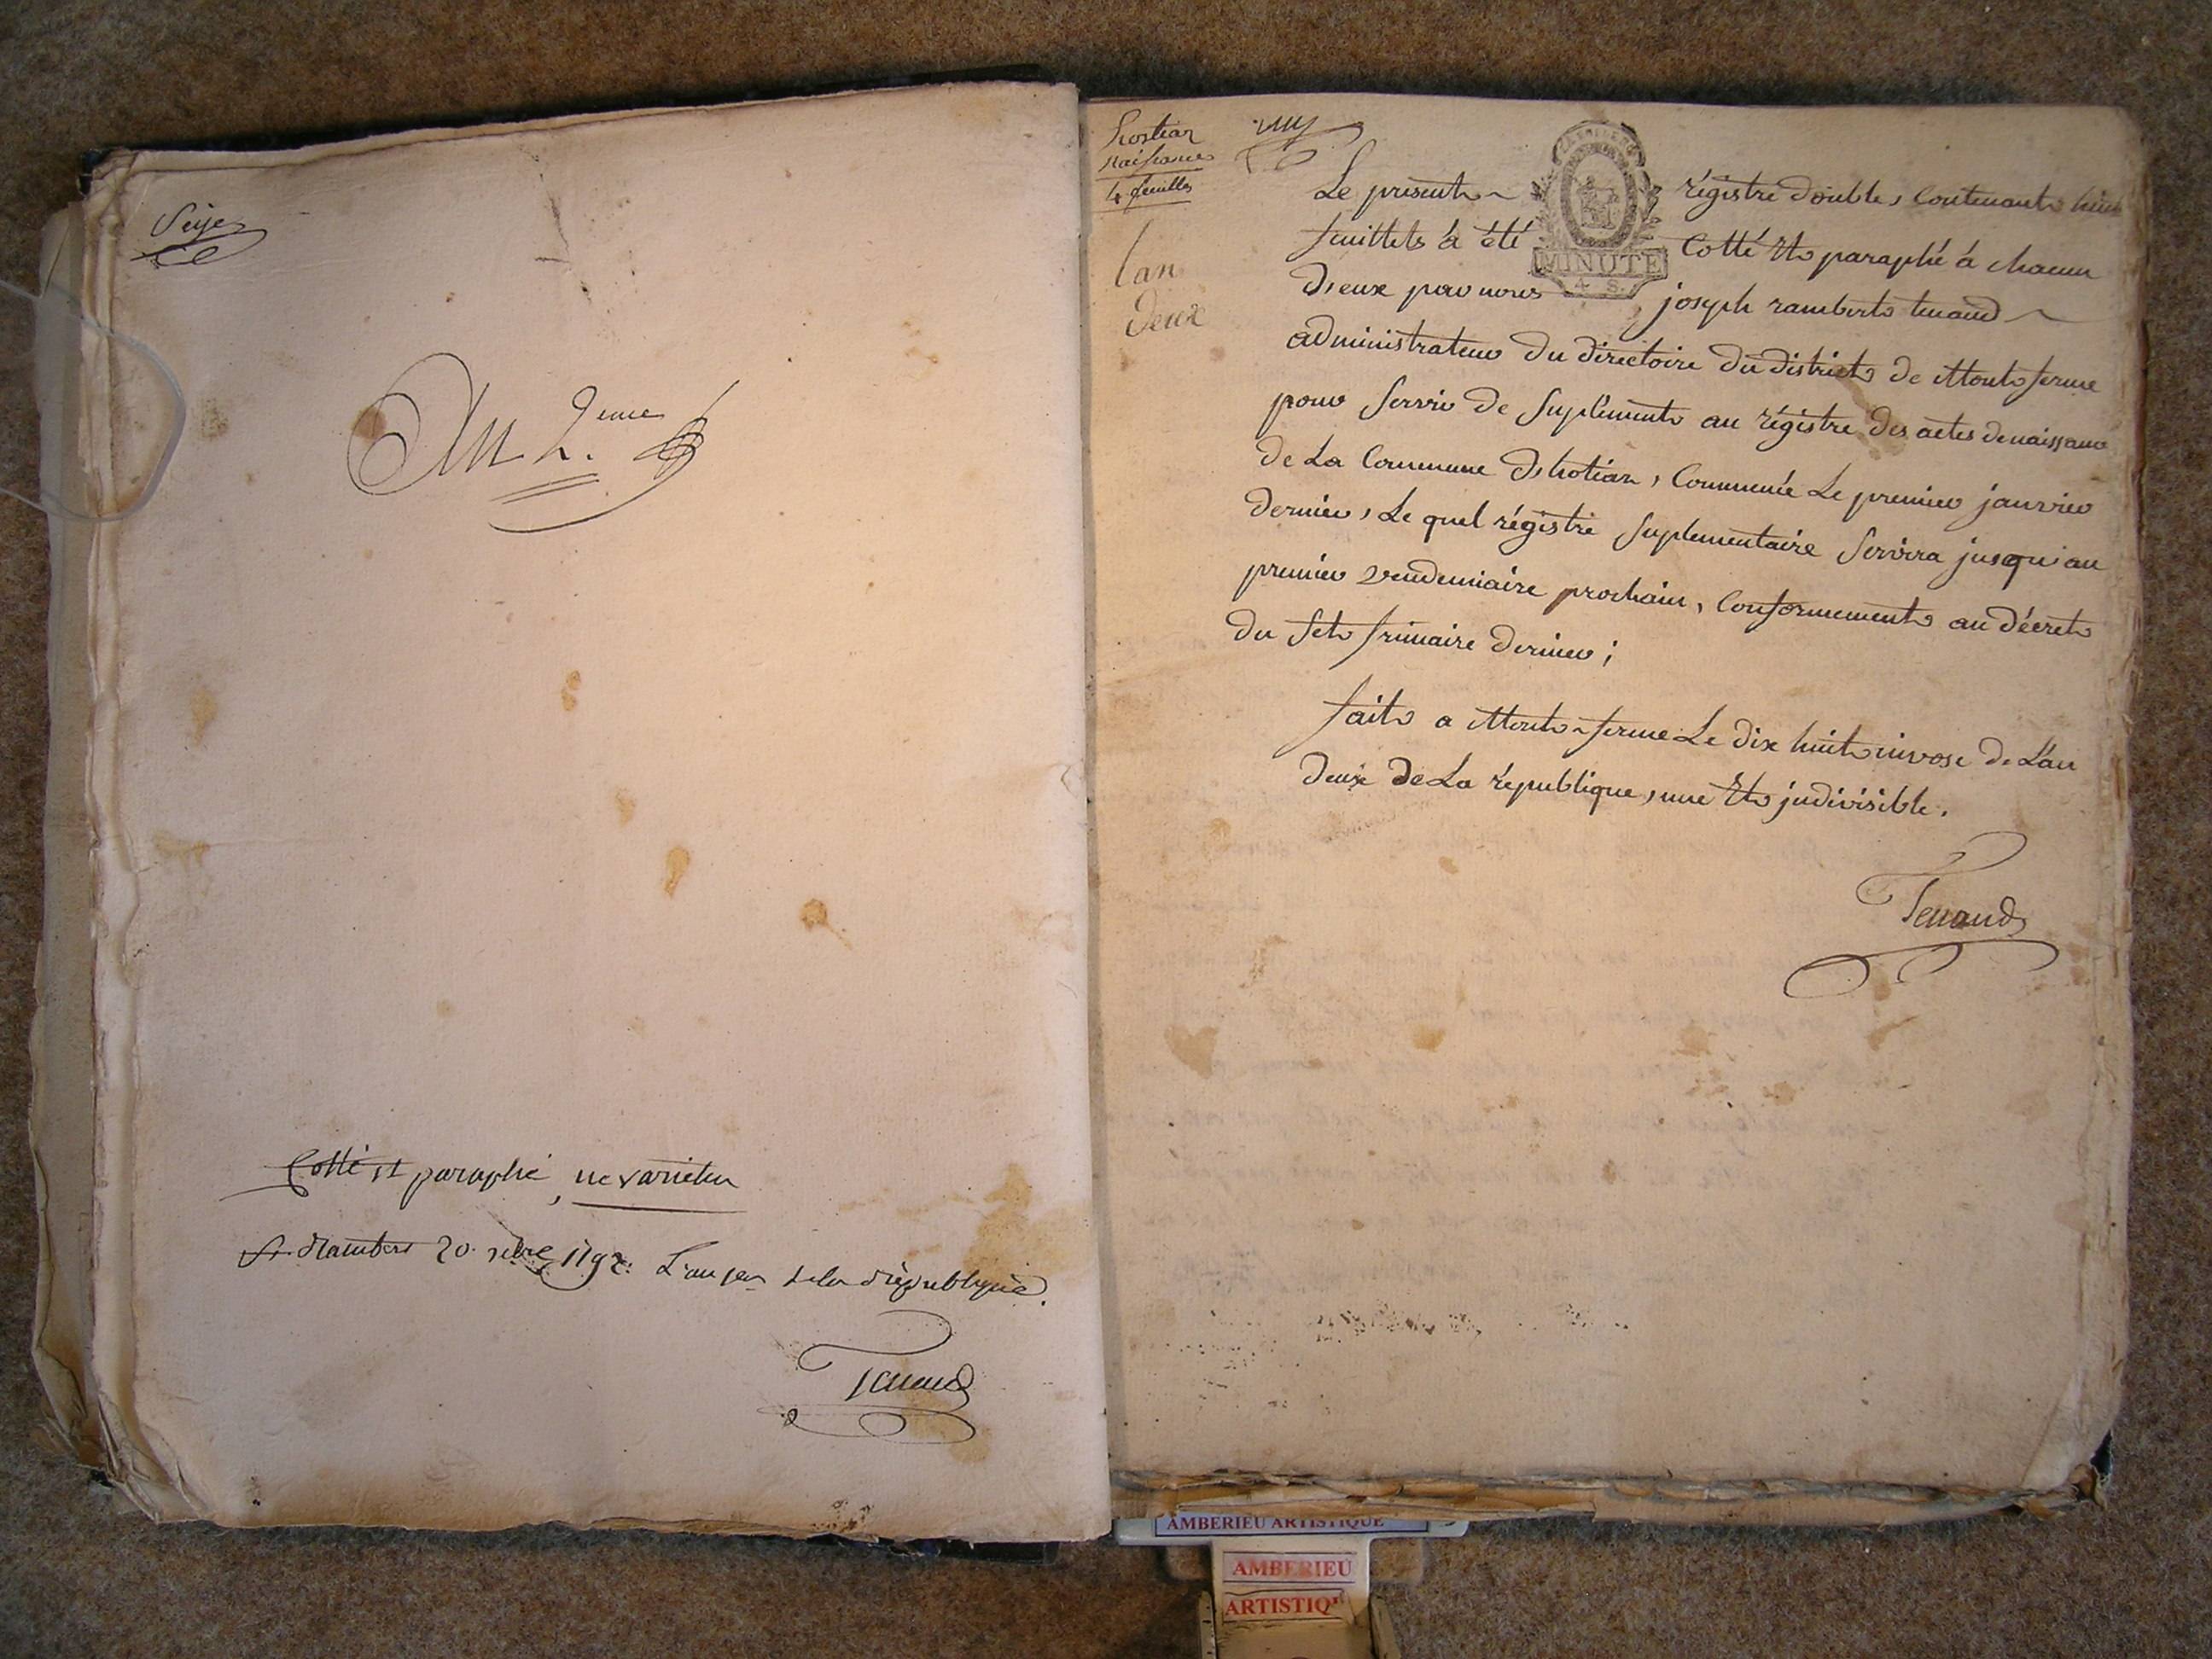 Seize
An 2.eme
Cotté et paraphé, ne varietur
St. Rambert 20. xbre 1792. L'an 1er de la république.
Tenand
hostiaz
Naissances
4 feuilles
l'an
deux
Le present régistre double, Contenant huit
feuillets à été Cotté Et paraphé à chacun
MINUTE
4. S.
D'eux par nous joseph rambert tenand
administrateur Du Directoire Du District De Mont-ferme
pour Servir De Suplément au régistre Des actes de naissance
De La Commune D'hotiaz, Commencée Le premier janvier
Dernier, Le quel régistre Suplementaire Servira jusqu'au
premier vendemiaire prochain, Conformement au Décret
Du Sept frimaire Dernier;
fait a Mont-ferme Le Dix huit nivose De L'an
Deux De La république, une Et indivisible.
Tenand
AMBERIEU ARTISTIQUE
AMBERIEU
ARTISTIQU